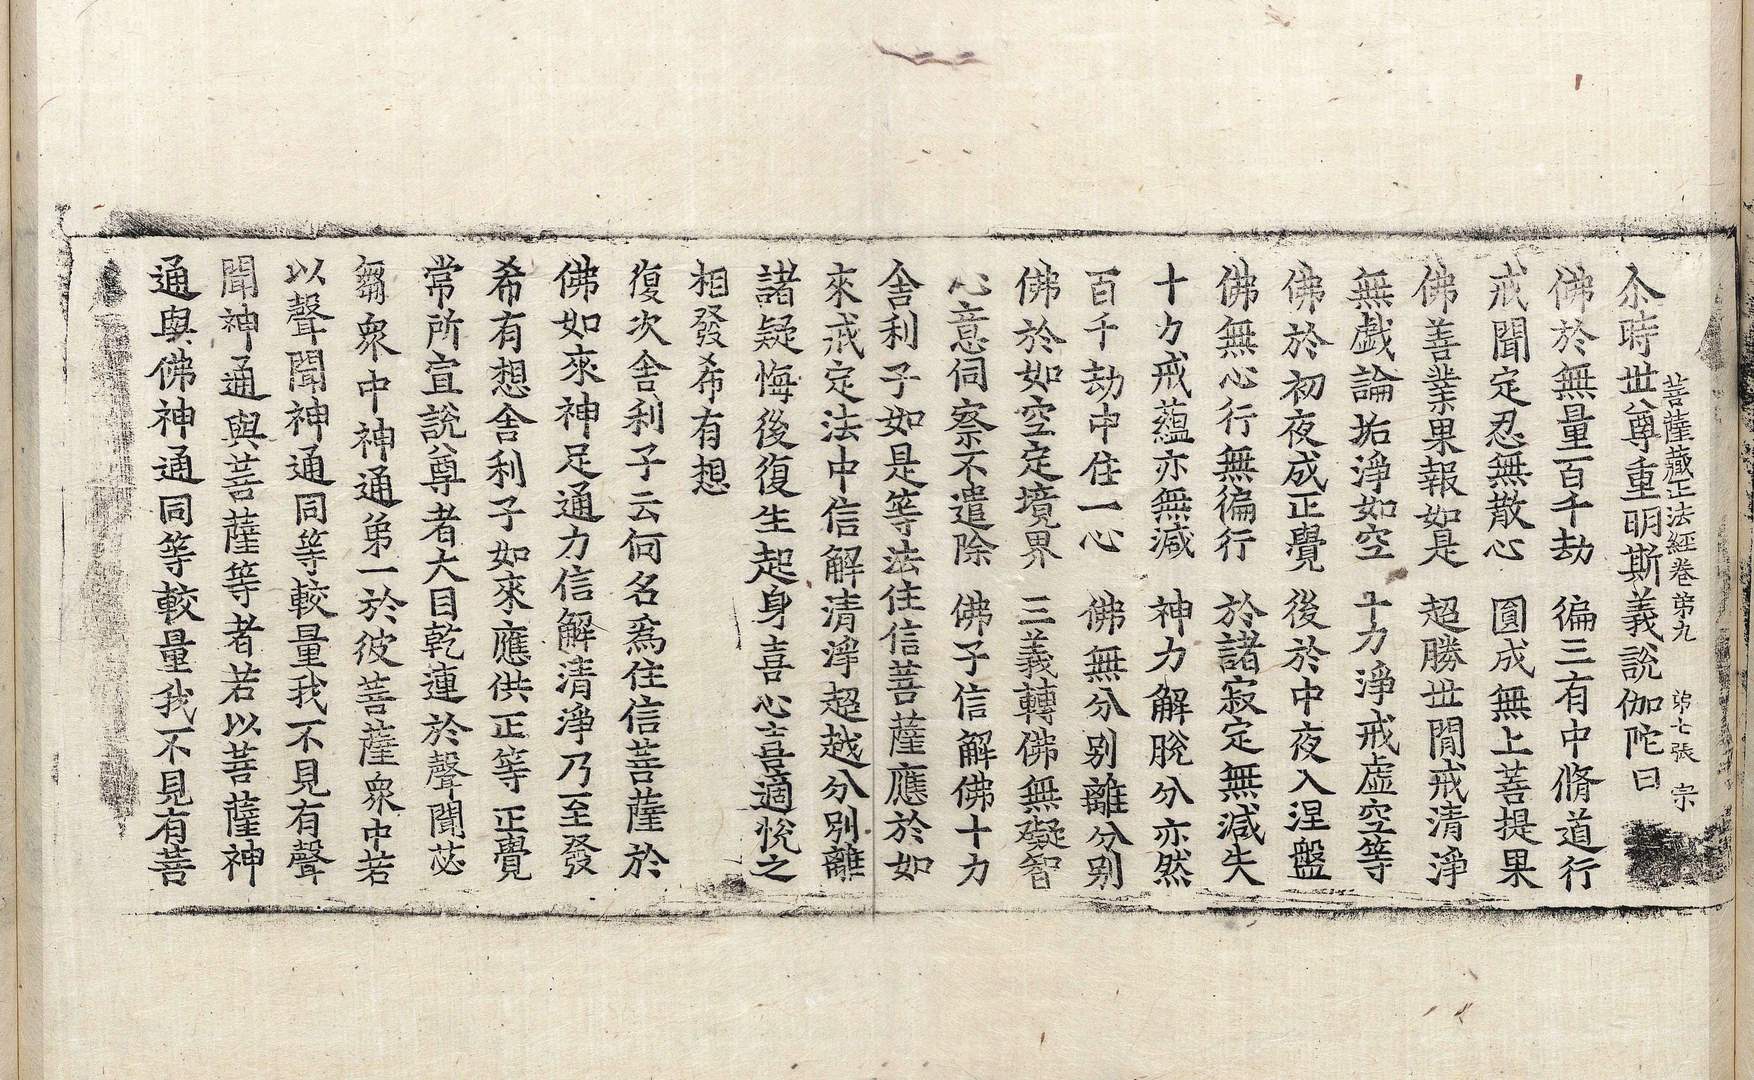 菩薩藏正法經卷第九 第七張 宗
尒時世尊重明斯義說伽陀曰
佛於無量百千劫 徧三有中脩道行
戒聞定忍無散心 圓成無上菩提果
佛善業果報如是 超勝世間戒清淨
無戲論垢淨如空 十力淨戒虛空等
佛於初夜成正覺 後於中夜入涅盤
佛無心行無徧行 於諸寂定無減失
十力戒蘊亦無減 神力解脫分亦然
百千劫中住一心 佛無分別離分別
佛於如空定境界 三義轉佛無礙智
心意伺察不遣除 佛子信解佛十力
舍利子如是等法住信菩薩應於如
來戒定法中信解清淨超越分別離
諸疑悔後復生起身喜心喜適悅之
相發希有想
復次舍利子云何名爲住信菩薩於
佛如來神足通力信解清淨乃至發
希有想舍利子如來應供正等正覺
常所宣說尊者大目乾連於聲聞苾
芻衆中神通第一於彼菩薩衆中若
以聲聞神通同等較量我不見有聲
聞神通與菩薩等者若以菩薩神
通與佛神通同等較量我不見有菩